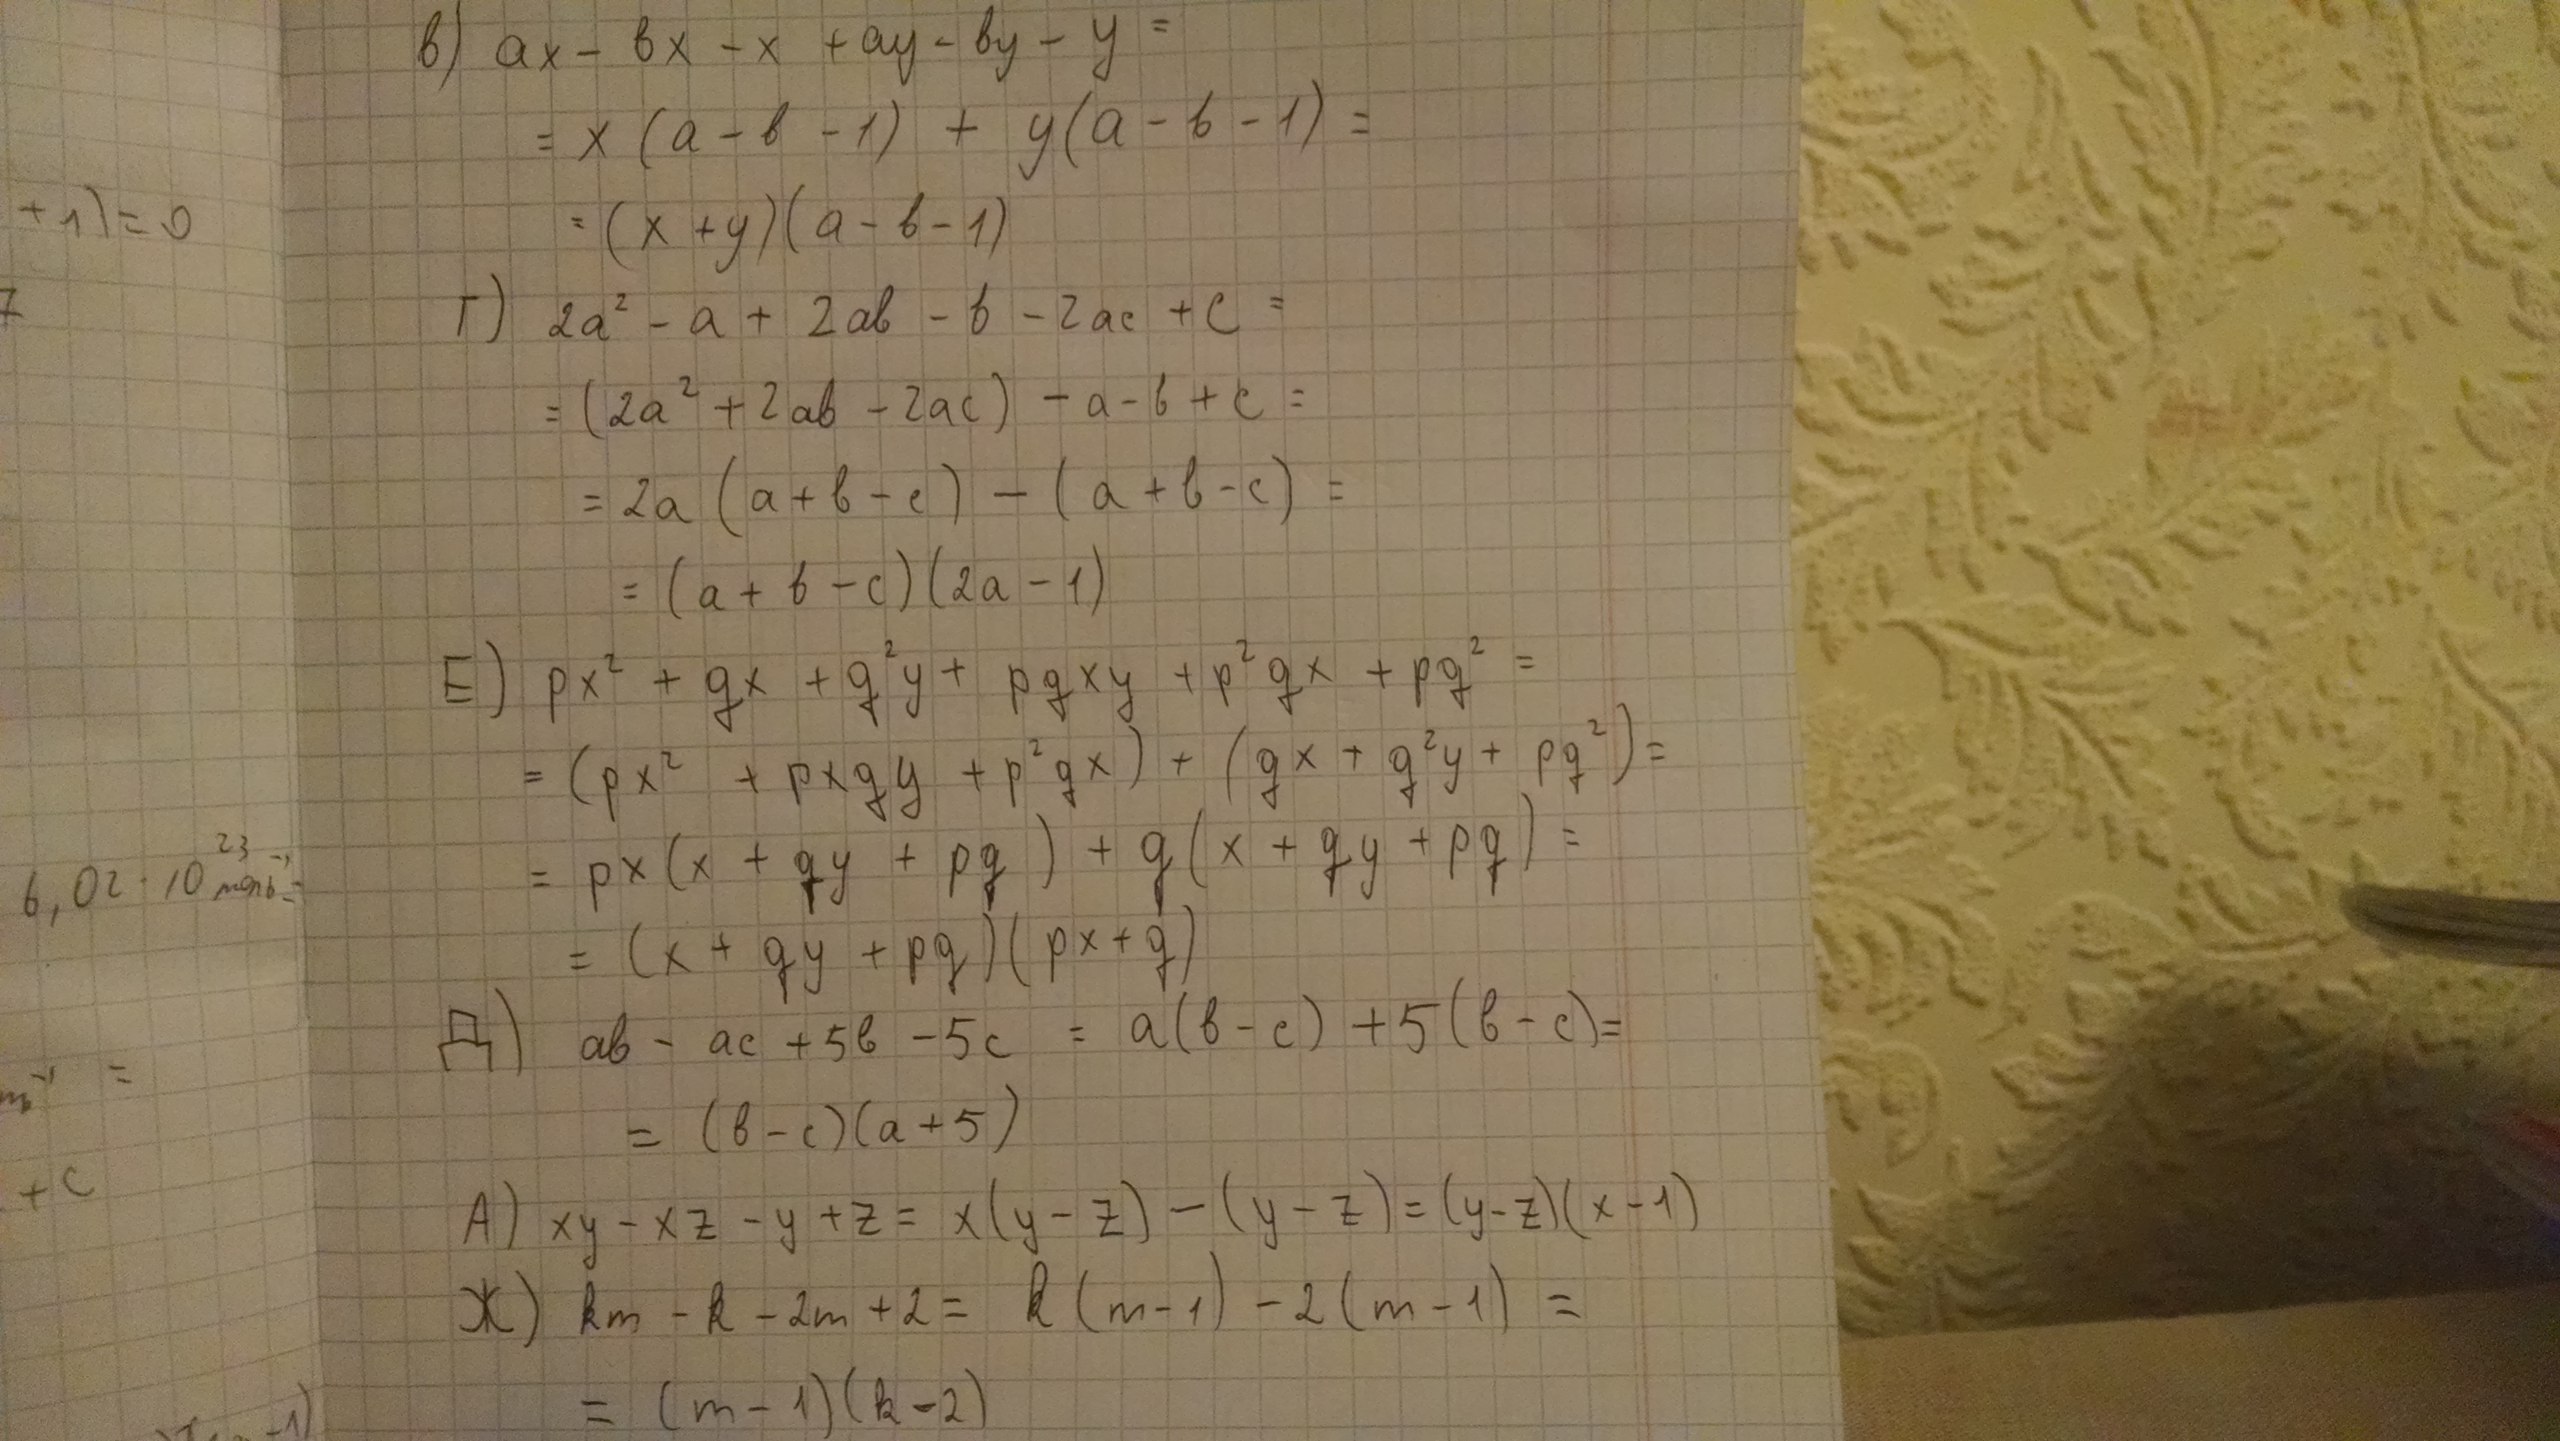 +1)=0
7
6,02·10²³ моль⁻¹=
m⁻¹ =
+c
-1)
в) ax - вx - x + ay - вy - y =
= x(a - в - 1) + y(a - в - 1) =
= (x + y)(a - в - 1)
Г) 2a² - a + 2aв - в - 2ac + c =
= (2a² + 2aв - 2ac) - a - в + c =
= 2a(a + в - c) - (a + в - c) =
= (a + в - c)(2a - 1)
Е) px² + qx + q²y + pqxy + p²qx + pq² =
= (px² + pxqy + p²qx) + (qx + q²y + pq²) =
= px(x + qy + pq) + q(x + qy + pq) =
= (x + qy + pq)(px + q)
Д) aв - ac + 5в - 5c = a(в - c) + 5(в - c) =
= (в - c)(a + 5)
А) xy - xz - y + z = x(y - z) - (y - z) = (y - z)(x - 1)
Ж) km - k - 2m + 2 = k(m - 1) - 2(m - 1) =
= (m - 1)(k - 2)